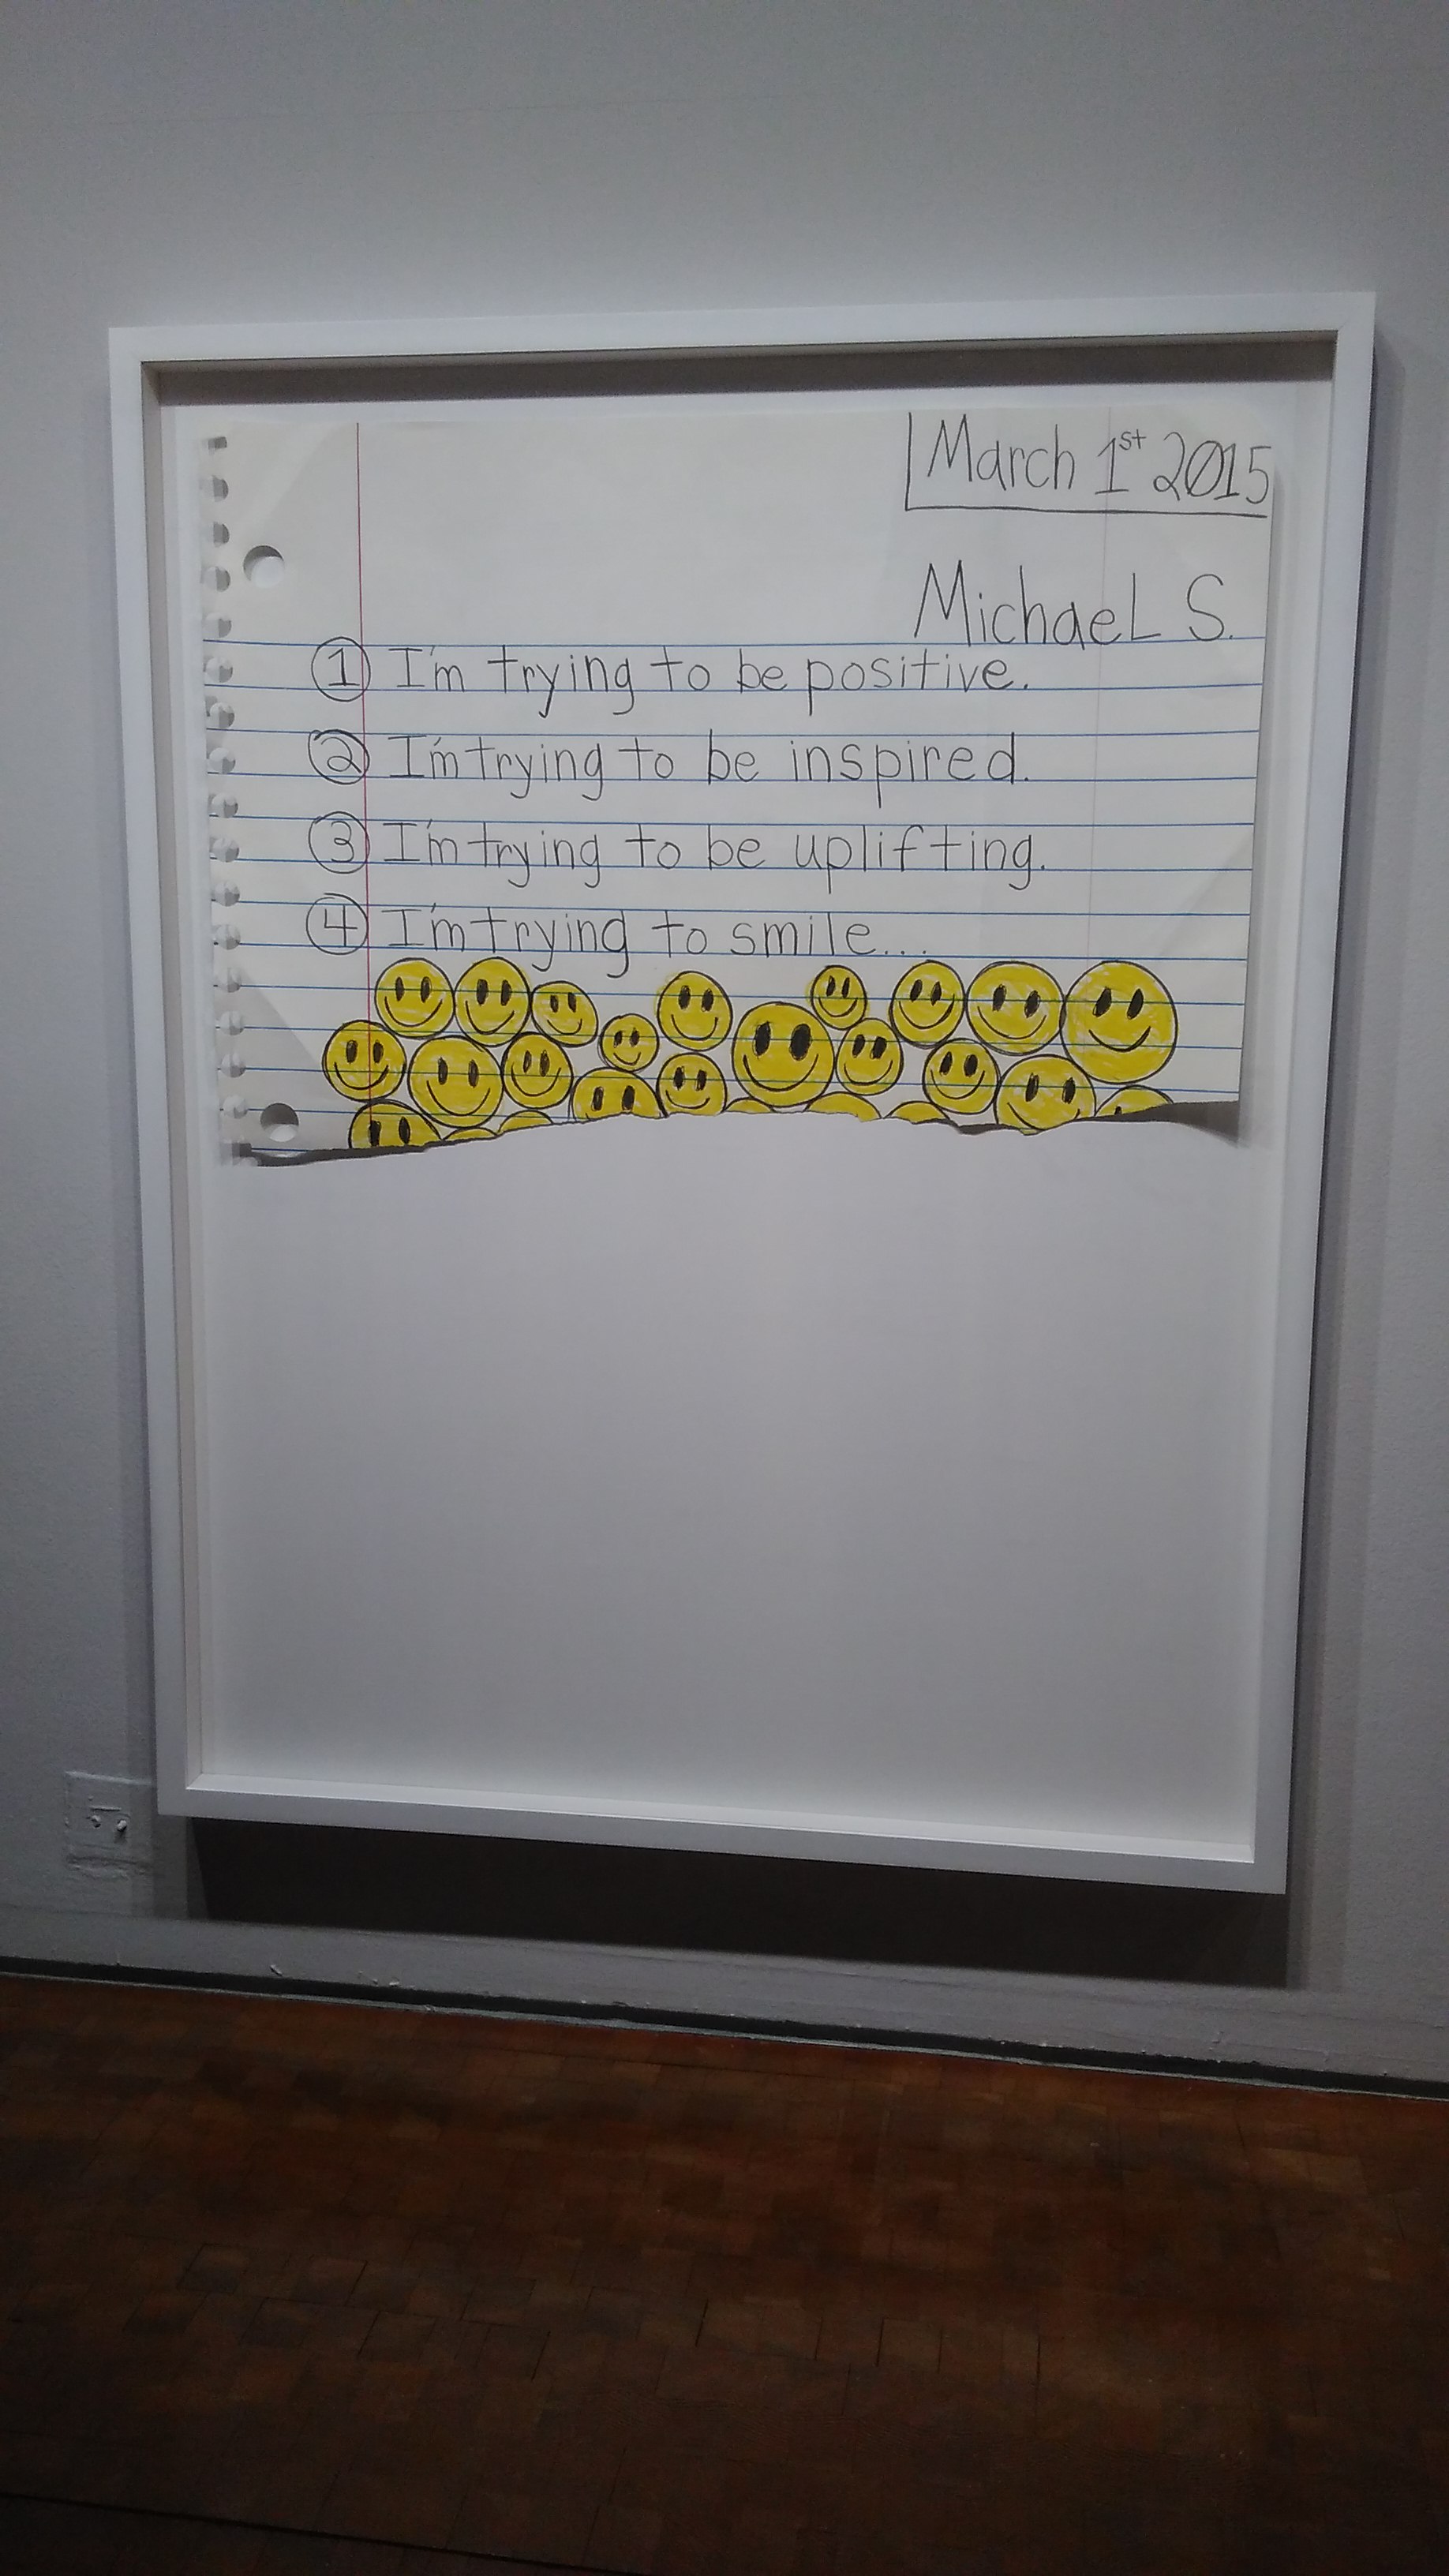 March 1st 2015
MichaeL S.
① I'm trying to be positive.
② I'm trying to be inspired.
③ I'm trying to be uplifting.
④ I'm trying to smile...